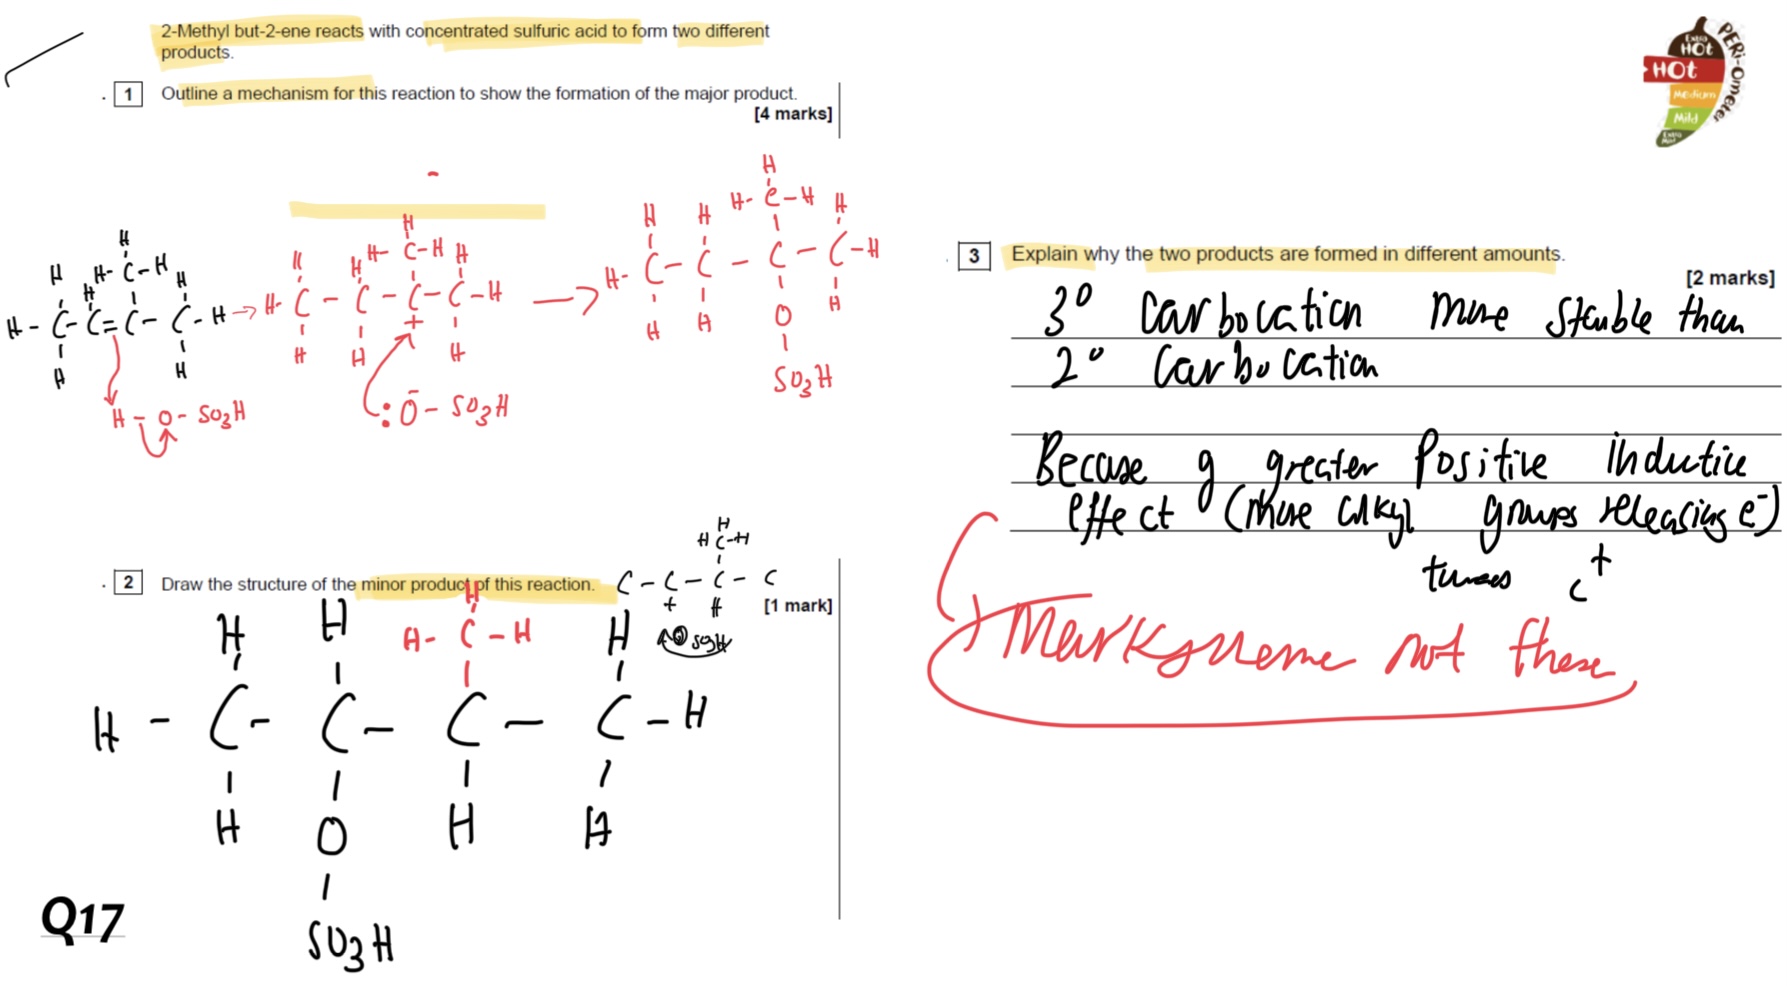 2-Methyl but-2-ene reacts with concentrated sulfuric acid to form two different
products.
. 1 Outline a mechanism for this reaction to show the formation of the major product.
[4 marks]
H
H H- C - H H
H
H - C - C = C - C - H
H H
H - O - SO3H
H
H H H- C - H H
H- C - C - C - C - H
+
H H H
: Ō - SO3H
H
H- C - H
H H H
H- C - C - C - C - H
H H O H
SO3H
. 2 Draw the structure of the minor product of this reaction.
[1 mark]
H
H C - H
C - C - C - C
+ H
O SO3H
H
H H H- C - H H
H - C - C - C - C - H
H O H H
SO3H
Q17
. 3 Explain why the two products are formed in different amounts.
[2 marks]
3° Carbocation more stable than
2° Carbocation
Because of greater Positive inductive
effect (more alkyl groups releasing e-)
C+
Markscheme not these
PERi-Ometer
Extra
HOt
HOt
Medium
Mild
Extra
Mild